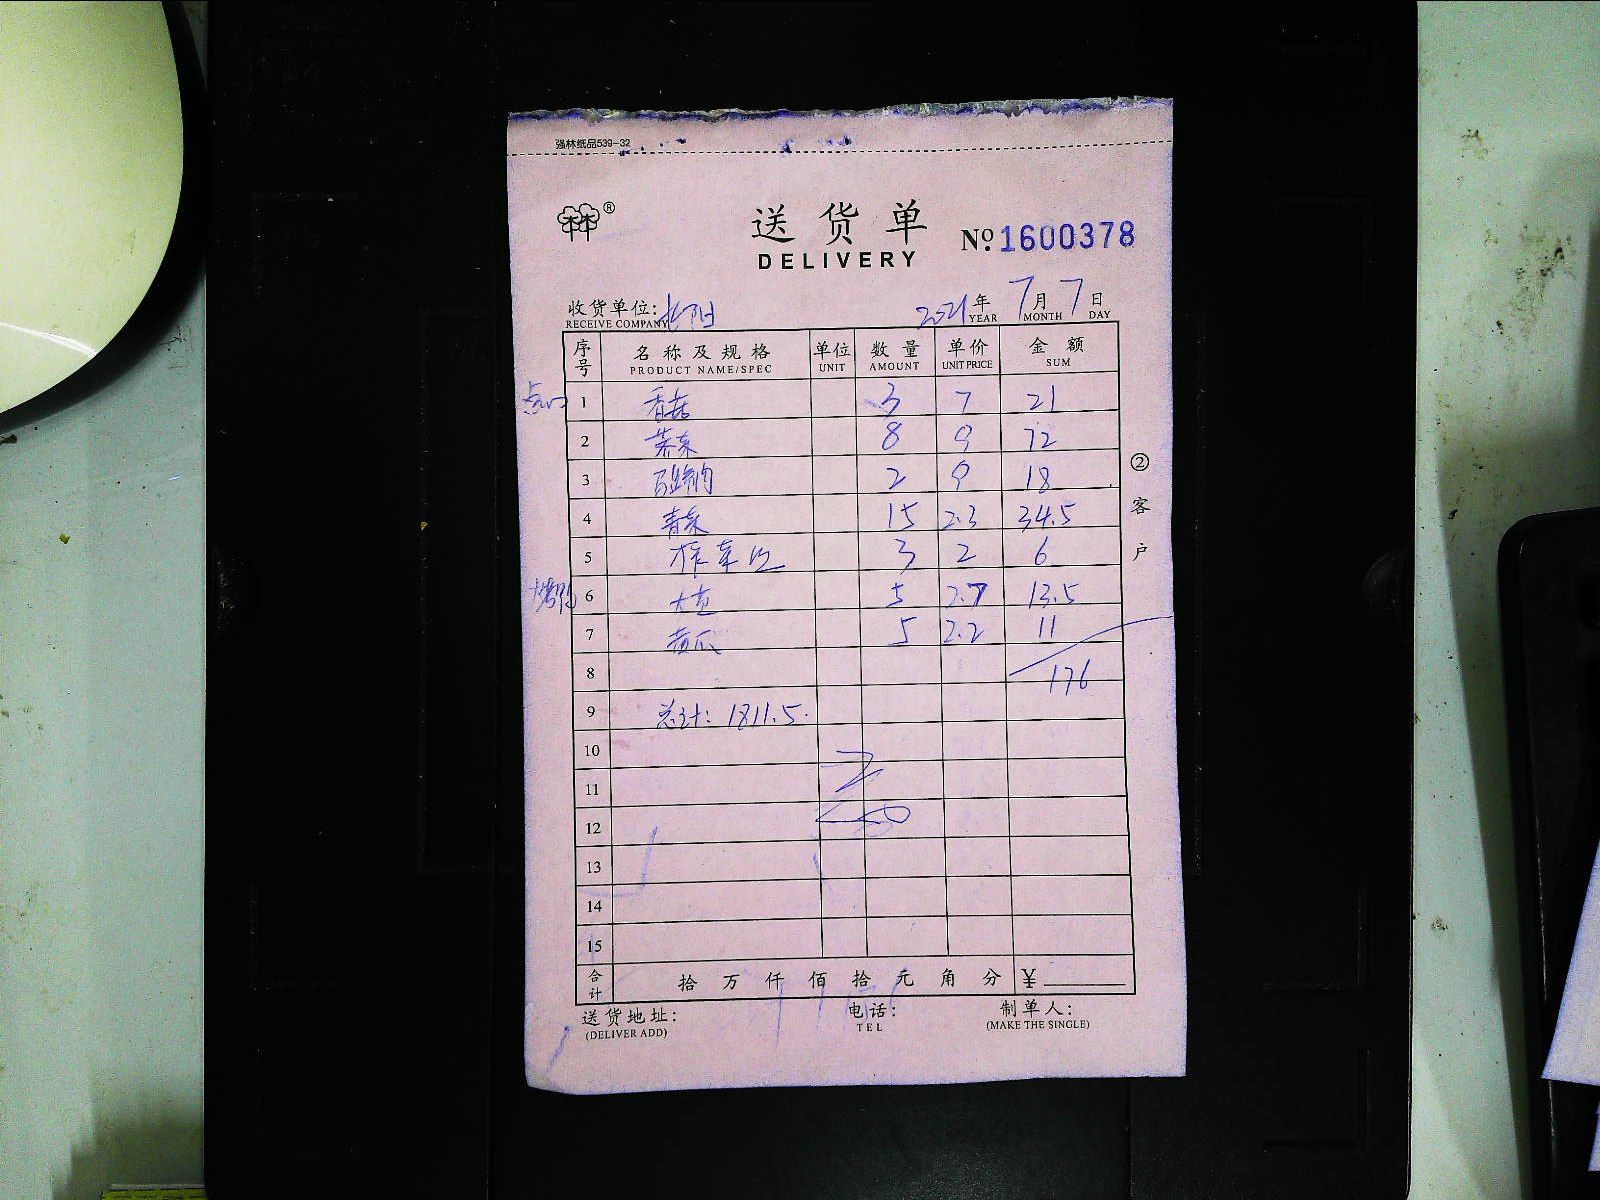 强林纸品539-32
林®
送货单
№ 1600378
DELIVERY
收货单位:
2021年7月7日
RECEIVE COMPANY YEAR MONTH DAY
序号 名称及规格 单位 数量 单价 金额
PRODUCT NAME/SPEC UNIT AMOUNT UNIT PRICE SUM
点心 1 香菇 3 7 21
2 菜东 8 9 72
3 2 9 18
4 青菜 15 2.3 34.5
5 榨菜丝 3 2 6
烤鸭 6 大葱 5 2.7 13.5
7 黄瓜 5 2.2 11
8 176
9 总计: 1811.5.
10
11
12
13
14
15
合计 拾万仟佰拾元角分 ¥
②客户
送货地址: 电话: 制单人:
(DELIVER ADD) TEL (MAKE THE SINGLE)